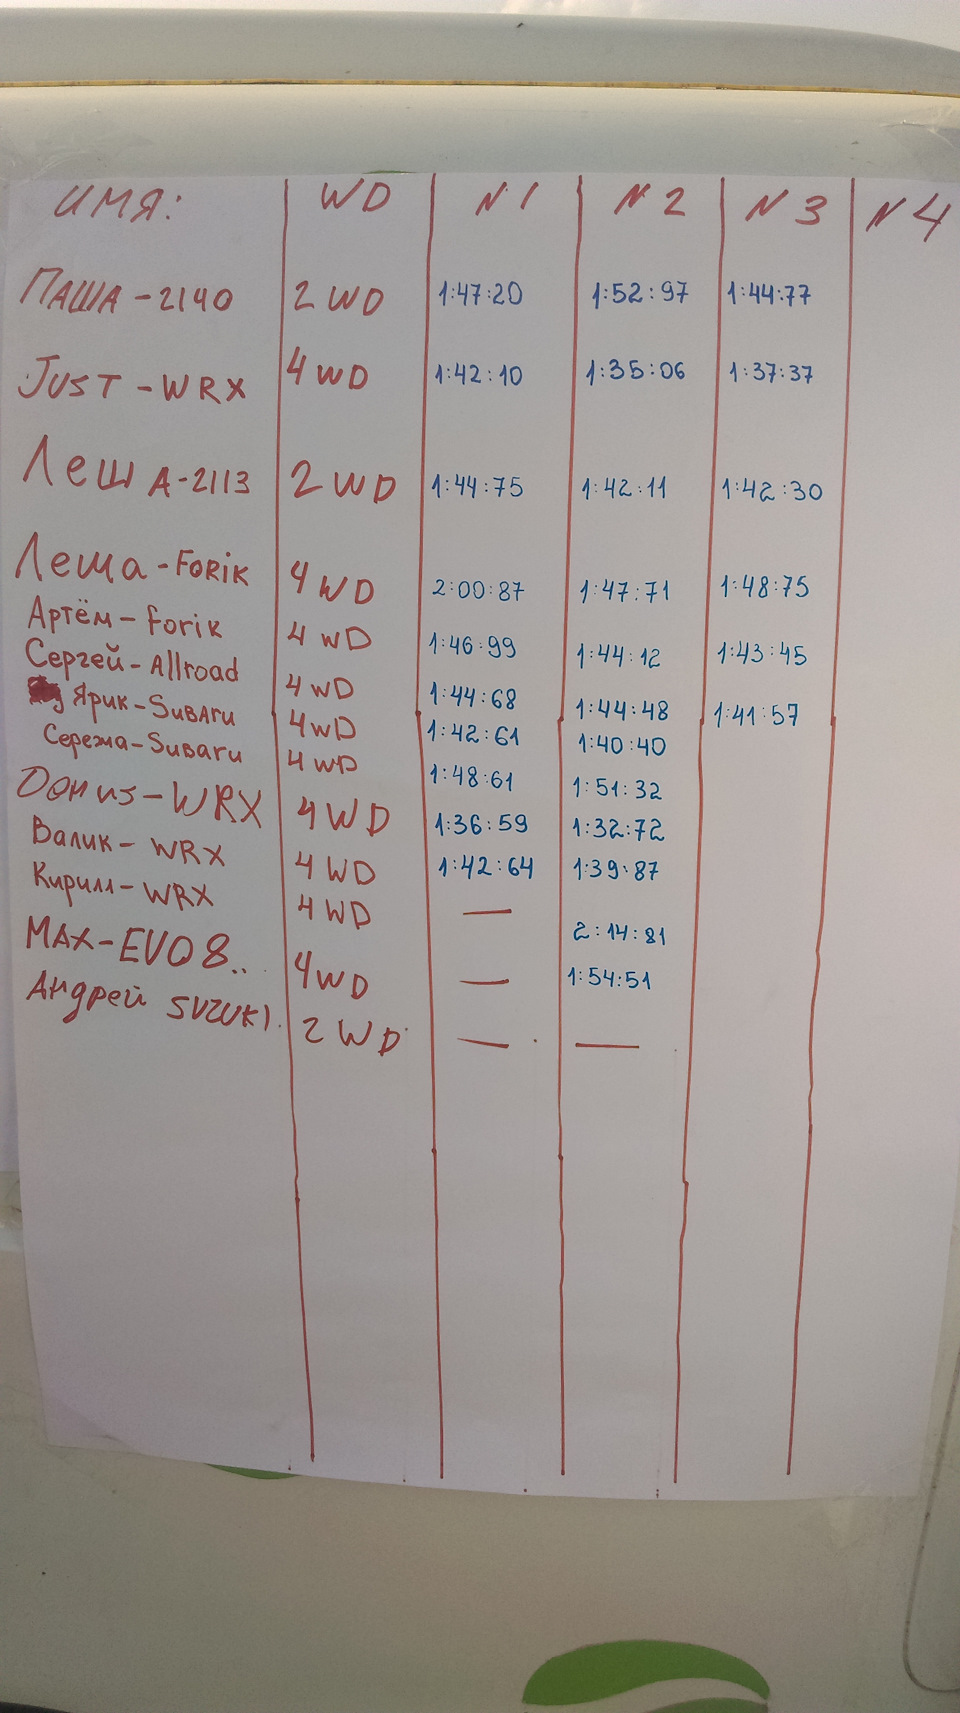 ИМЯ: WD N1 N2 N3 N4
ПАША-2140 2WD 1:47:20 1:52:97 1:44:77
JUST-WRX 4WD 1:42:10 1:35:06 1:37:37
ЛеША-2113 2WD 1:44:75 1:42:11 1:42:30
Леша-FORIK 4WD 2:00:87 1:47:71 1:48:75
Артём-forik 4WD 1:46:99 1:44:12 1:43:45
Сергей-Allroad 4WD 1:44:68 1:44:48 1:41:57
Ярик-SUBARU 4WD 1:42:61 1:40:40
Сережа-Subaru 4WD 1:48:61 1:51:32
-WRX 4WD 1:36:59 1:32:72
Валик-WRX 4WD 1:42:64 1:39:87
Кирилл-WRX 4WD — 2:14:81
MAX-EVO8.. 4WD — 1:54:51
Андрей SUZUKI. 2WD — —